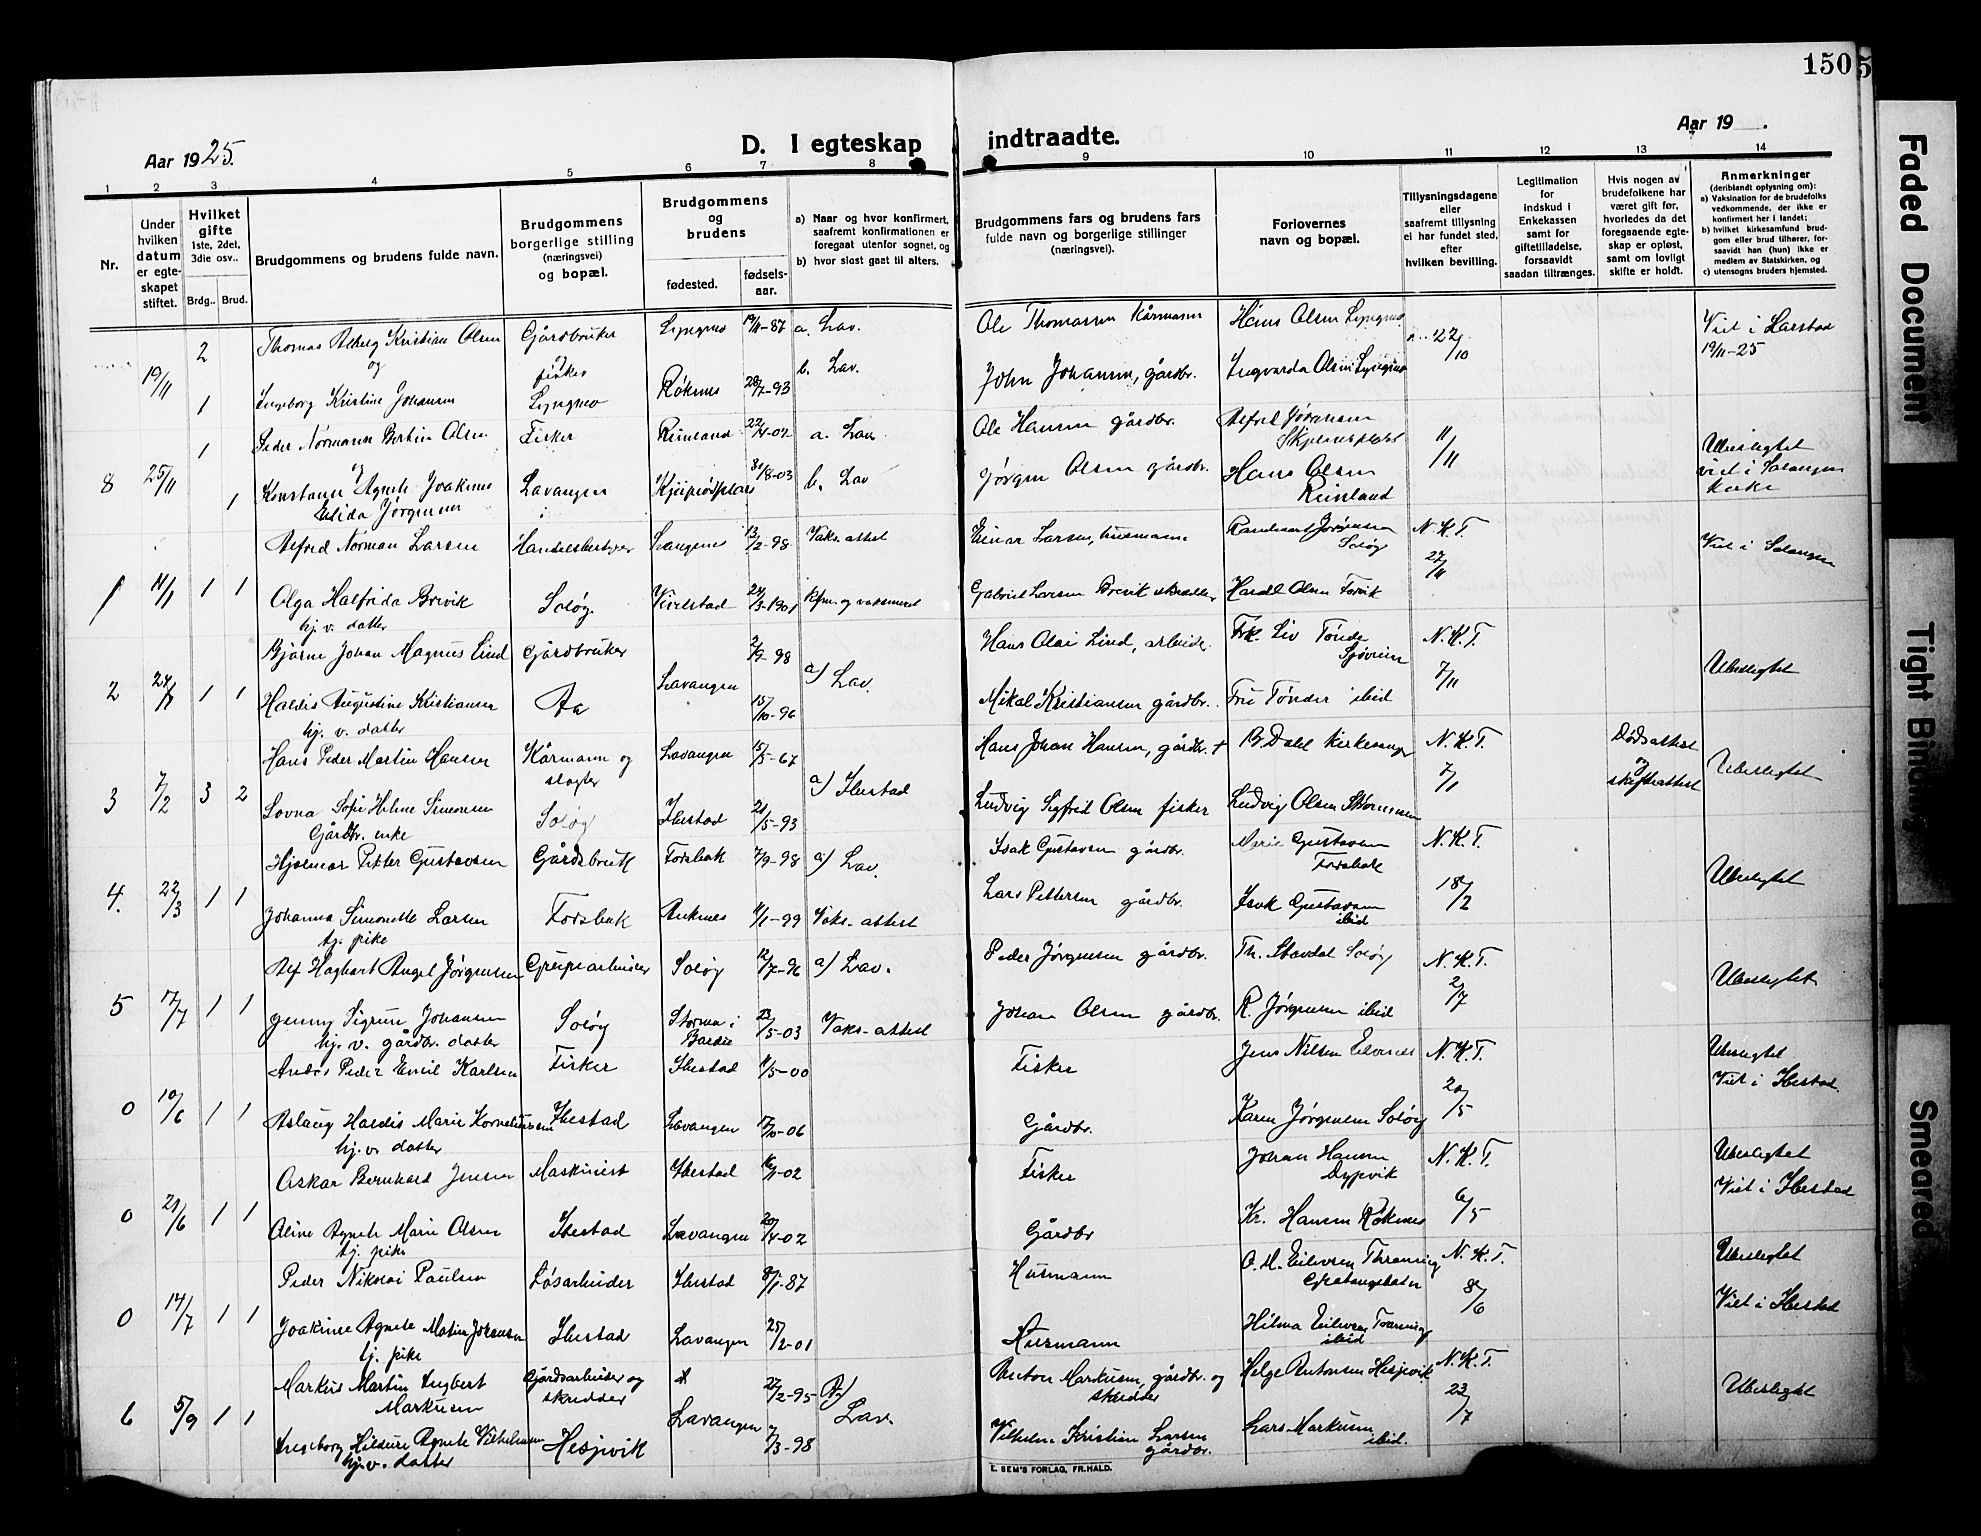 150
5
Aar 1925.
D. I egteskap indtraadte.
Aar 19 .
1 2 3 4 5 6 7 8 9 10 11 12 13 14
Nr.
Under hvilken datum er egteskapet stiftet.
Hvilket gifte
1ste, 2det, 3die osv..
Brdg.. Brud.
Brudgommens og brudens fulde navn.
Brudgommens borgerlige stilling (næringsvei) og bopæl.
Brudgommens og brudens
fødested.
fødsels-aar.
a) Naar og hvor konfirmert, saafremt konfirmationen er foregaat utenfor sognet, og
b) hvor sidst gaat til alters.
Brudgommens fars og brudens fars fulde navn og borgerlige stillinger (næringsvei).
Forlovernes navn og bopæl.
Tillysningsdagene eller saafremt tillysning ei har fundet sted, efter hvilken bevilling.
Legitimation for indskud i Enkekassen samt for giftetilladelse, forsaavidt saadan tiltrænges.
Hvis nogen av brudefolkene har været gift før, hvorledes da det foregaaende egteskap er opløst, samt om lovligt skifte er holdt.
Anmerkninger
(deriblandt oplysning om):
a) Vaksination for de brudefolks vedkommende, der ikke er konfirmert her i landet;
b) hvilket kirkesamfund brudgom eller brud tilhører, forsaavidt han (hun) ikke er medlem av Statskirken, og
c) utensogns bruders hjemsted.
19/11 2 Thomas Kristian Olsen Gårdbruker 19/11-87 a. Lav. Ole Thomassen Kårmann Hans Olsen 22/10 Viet i
og fisker b. Lav. 19/11-25
1 Ingeborg Kristine Johansen Røknes 28/7-93 John Johansen, gårdbr. Ingvarda Olsen
8 25/11 1 Peder Normann Bertin Olsen Fisker Reinland 22/4-02 a. Lav Ole Hansen gårdbr. Alfred Jørgensen 11/11 Ubeslegtet
og viet i Salangen
1 Konstanse Agnete Joakime Lavangen 31/8-03 b. Lav Jørgen Olsen gårdbr. Hans Olsen kirke
Elida Jørgensen Reinland
1 11/1 1 1 Alfred Norman Larsen Handelsbestyrer 13/2-98 Vaks. attest Einar Larsen, husmann Jørgensen Soløy N.K.T. Viet i Salangen
27/11
Olga Halfrida Brevik Soløy 24/3-1901 Gabriel Larsen Brevik Olsen
hj. v. datter
2 1 1 Bjarne Johan Magnus Lind Gårdbruker Lavangen 2/9-98 a) Lav. Hans Olai Lind, arbeider Frk. Liv Tønder N.K.T. Ubeslegtet
7/11
Haldis Augustine Kristiansen Aa 15/10-96 Mikal Kristiansen gårdbr. Fru Tønder ibid
hj. v. datter
3 7/2 3 2 Hans Peder Martin Hansen Kårmann og slagter Lavangen 15/5-67 a) Ibestad Hans Johan Hansen, gårdbr. + B. Dahl kirkesanger N.K.T. Dødsattest Ubeslegtet
7/1 og skifteattest
Lovna Sofie Helene Simonsen Soløy Ibestad 21/5-93 Ludvig Sigfred Olsen fisker Ludvig Olsen
Gårdbr. enke
4. 22/3 1 1 Hjalmar Petter Gustavsen Gårdsbruk Fossbak 7/9-98 a) Lav. Isak Gustavsen gårdbr. Marie Gustavsen Fossbak N.K.T. Ubeslegtet
18/2
Johanna Simonette Larsen Fossbak 11/1-99 Vaks. attest Lars Pettersen gårdbr. Isak Gustavsen ibid
tj. pike
5 17/7 1 1 Alf Hagbart Angel Jørgensen Grupearbeider Soløy 12/7-96 a) Lav. Peder Jørgensen gårdbr. Th. Stavdal Soløy N.K.T. Ubeslegtet
2/7
Jenny Sigrun Johansen Soløy i Bardu 23/5-03 Vaks. attest Johan Olsen gårdbr. R. Jørgensen ibid
hj. v. gårdbr. datter
0 10/6 1 1 Anders Peder Emil Karlsen Fisker Ibestad 11/5-00 Fisker Jens Nilsen N.K.T. Ubeslegtet
20/5 Viet i Ibestad.
Aslaug Haldis Marie Korneliussen Ibestad Lavangen 17/10-06 Gårdbr. Karen Jørgensen Soløy
hj. v. datter
0 21/6 1 1 Oskar Bernhard Jensen Maskinist Ibestad 02 Fisker Johan Hansen Dypvik N.K.T. Ubeslegtet
6/5 Viet i Ibestad
Aline Agnete Marie Olsen Ibestad Lavangen 20/4-02 Gårdbr Kr. Hansen Røknes
tj. pike
0 14/7 1 1 Peder Nikolai Paulsen Løsarbeider Ibestad 8/1-87 Husmann O. M. Eilevsen N.K.T. Ubeslegtet
8/6 Viet i Ibestad
Joakime Agnete Matea Johansen Ibestad Lavangen 25/2-01 Husmann Hilma Eilevsen ibid
tj. pike
6 5/9 1 1 Markus Martin Ingbert Markusen Gårdsarbeider og skredder Lavangen 27/2-95 a) Lav. Anton Markusen, gårdbr. og skredder Helge Antonsen Hesjevik N.K.T. Ubeslegtet
23/7
Ingeborg Hildine Agnete Vilhelmsen Hesjevik 7/3-98 Vilhelm Kristian Larsen gårdbr. Lars Markusen ibid.
hj. v. datter
E. SEM'S FORLAG, FR.HALD.
Faded Document
Tight Binding
Smeared